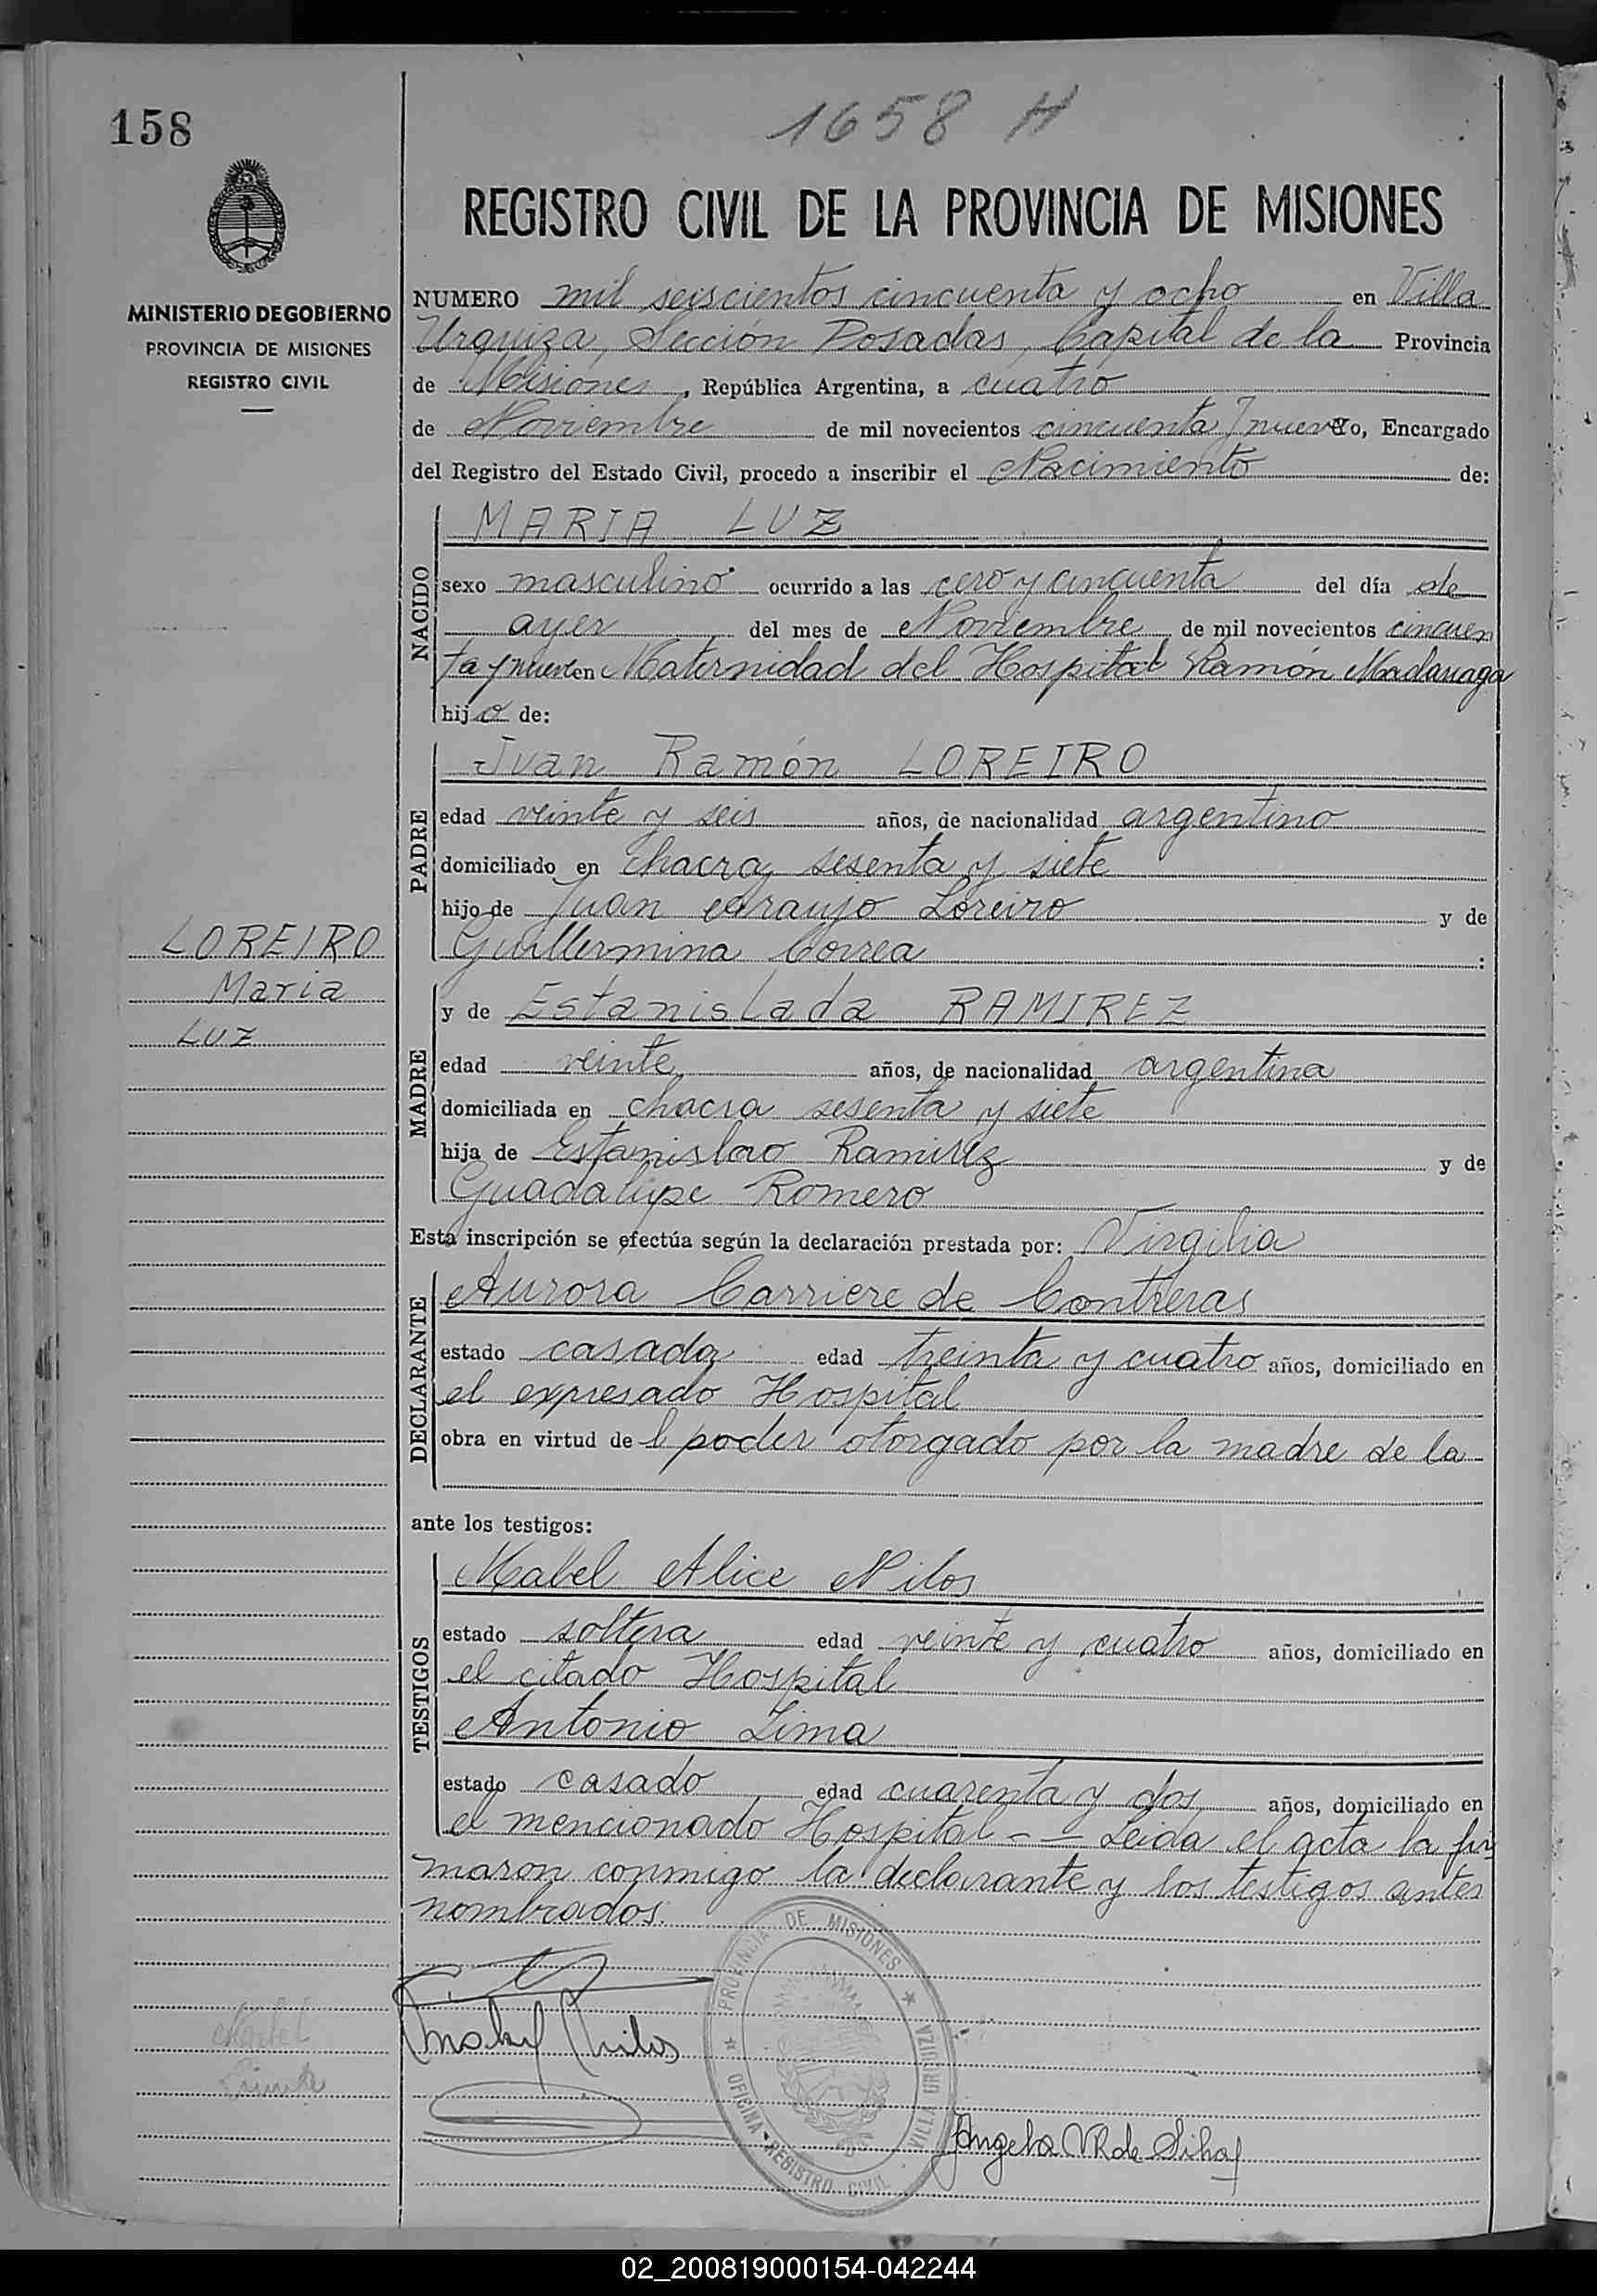 158
1658 H
REGISTRO CIVIL DE LA PROVINCIA DE MISIONES
MINISTERIO DE GOBIERNO
PROVINCIA DE MISIONES
REGISTRO CIVIL
NUMERO mil seiscientos cincuenta y ocho en Villa
Urquiza, Sección Posadas, Capital de la Provincia
de Misiones, República Argentina, a cuatro
de Noviembre de mil novecientos cincuenta y nueve yo, Encargado
del Registro del Estado Civil, procedo a inscribir el Nacimiento de:
NACIDO
MARIA LUZ
sexo masculino ocurrido a las cero y cincuenta del día de
ayer del mes de Noviembre de mil novecientos cincuen
ta y nueve en Maternidad del Hospital Ramón Madariaga
hijo de:
PADRE
Juan Ramón LOREIRO
edad veinte y seis años, de nacionalidad argentino
domiciliado en chacra sesenta y siete
hijo de Juan Araujo Loreiro y de
Guillermina Correa :
LOREIRO
Maria
LUZ
MADRE
y de Estanislada RAMIREZ
edad veinte años, de nacionalidad argentina
domiciliada en chacra sesenta y siete
hija de Estanislao Ramirez y de
Guadalupe Romero
Esta inscripción se efectúa según la declaración prestada por: Virgilia
DECLARANTE
Aurora Carriere de Contreras
estado casada edad treinta y cuatro años, domiciliado en
el expresado Hospital
obra en virtud del poder otorgado por la madre de la
ante los testigos:
TESTIGOS
Mabel Alice Nilos
estado soltera edad veinte y cuatro años, domiciliado en
el citado Hospital
Antonio Lima
estado casado edad cuarenta y dos años, domiciliado en
el mencionado Hospital - - Leida el acta la fir
maron conmigo la declarante y los testigos antes
nombrados.
PROVINCIA DE MISIONES
OFICINA REGISTRO CIVIL VILLA URQUIZA
Mabel Nilos
Angela V R de Silva
02_200819000154-042244